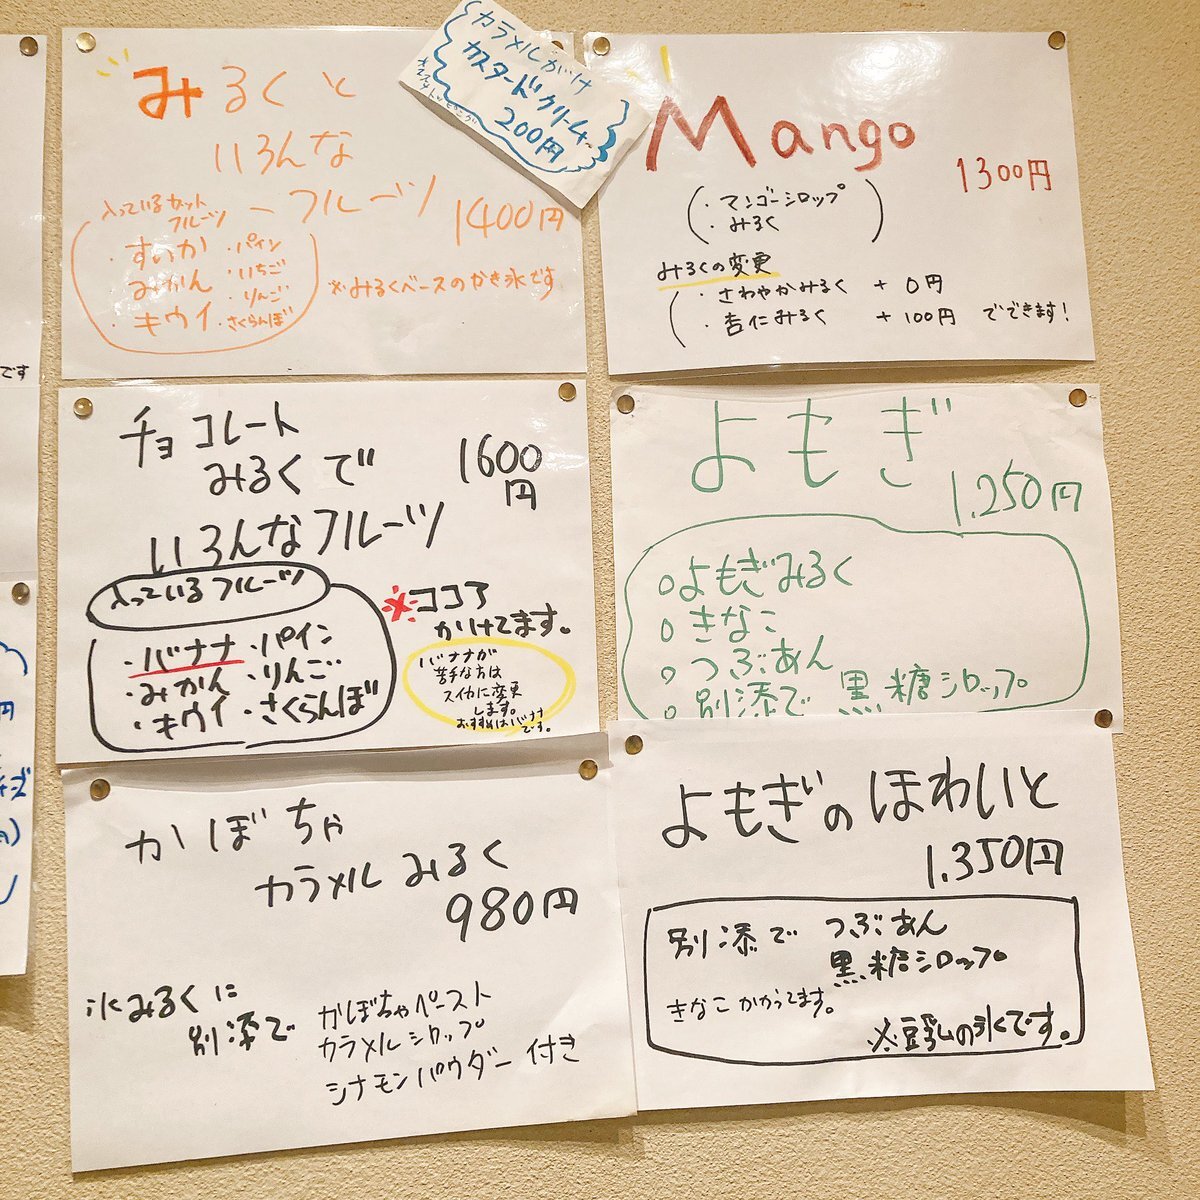 みるくと
いろんな
フルーツ
1400円
入っているカット
フルーツ
・すいか ・パイン
・みかん ・いちご
・りんご
・キウイ ・さくらんぼ
※みるくベースのかき氷です
カラメルがけ
カスタードクリーム
200円
Mango
1300円
・マンゴーシロップ
・みるく
みるくの変更
・さわやかみるく + 0円
・杏仁みるく + 100円 でできます!
チョコレート
みるくで
いろんなフルーツ
1600
円
入っているフルーツ
・バナナ ・パイン
・みかん ・りんご
・キウイ ・さくらんぼ
※ココア
かけてます。
バナナが
苦手な方は
スイカに変更
します。
おすすめはバナナ
です。
よもぎ
1.250円
○よもぎみるく
○きなこ
○つぶあん
○別添で 黒糖シロップ
かぼちゃ
カラメルみるく
980円
氷みるくに
別添で
かぼちゃペースト
カラメルシロップ
シナモンパウダー付き
よもぎのほわいと
1.350円
別添で つぶあん
黒糖シロップ
きなこかかってます。
※豆乳の氷です。
です
円